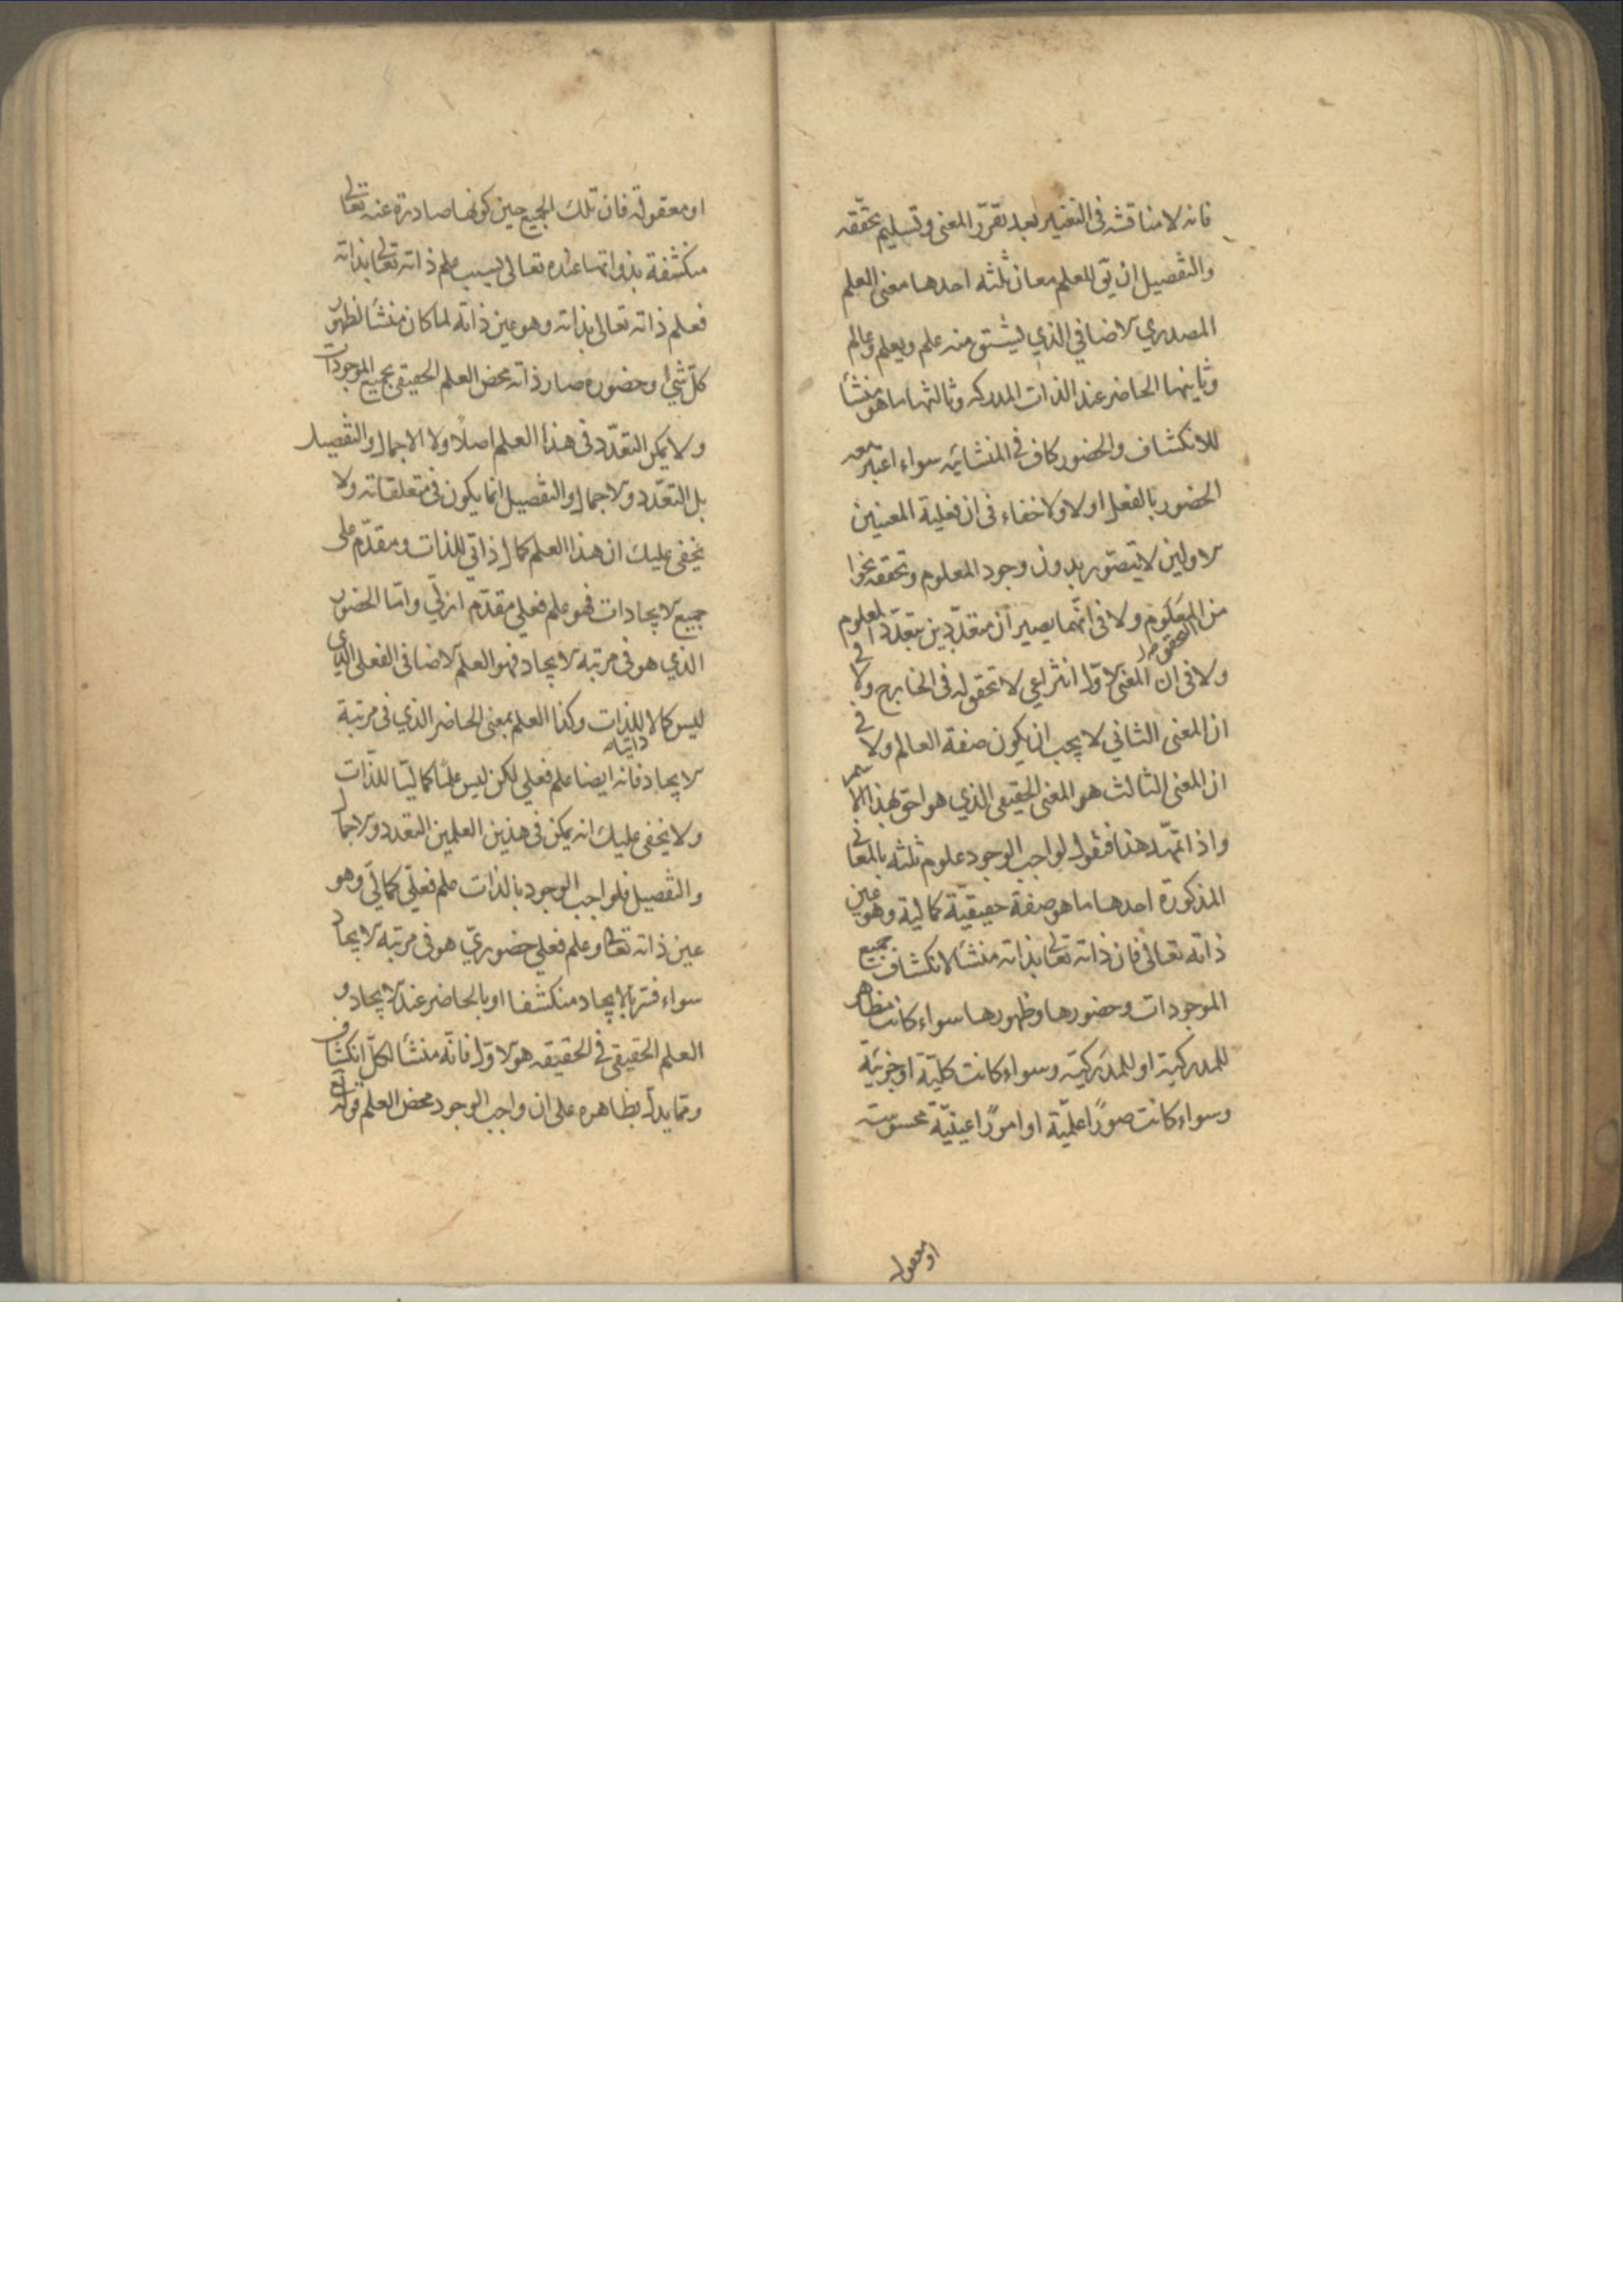 فانه لا مناقشه فى التعبير بعد تقرّر المعنى وتسليم تحقّقه
والتفصيل ان يق للعلم معان ثلثه احدها معنى العلم
المصدري الاضافي الذي يشتق منه علم ويعلم وعالم
وثانيها الحاضر عند الذات المدركه وثالثها ما هو منشأ
للانكشاف والحضور كاف فى المنشائيه سواء اعتبر معه
الحضور بالفعل او لا ولا خفاء فى ان فعلية المعنيين
الاولين لا يتصور بدون وجود المعلوم وتحققه نحوا
من التحقق ولا فى انّهما يصيران متعدّدين بتعدّد المعلوم
ولا فى ان المعنى الاوّل انتزاعي لا تحقق له فى الخارج ولا فى
ان المعنى الثاني لا يجب ان يكون صفة العالم ولا فى
ان المعنى الثالث هو المعنى الحقيقى الذي هو احق بهذا الاسم
واذا تمهّد هذا فنقول لواجب الوجود علوم ثلثه بالمعانى
المذكورة احدها ما هو صفة حقيقيّة كمالية وهو عين
ذاته تعالى فان ذاته تعالى بذاته منشأ لانكشاف جميع
الموجودات وحضورها وظهورها سواء كانت مظاهر
للمدركية او للمدركيّه وسواء كانت كليّة او جزئيّة
وسواء كانت صورًا علميّة او امورًا عينيّة محسوسة
او معقولة
او معقولة فان تلك الجميع حين كونها صادرة عنه تعالى
منكشفة بذواتها عنده تعالى بسبب علم ذاته تعالى بذاته
فعلم ذاته تعالى بذاته وهو عين ذاته لما كان منشأ لظهور
كلّ شئ وحضوره صار ذاته محض العلم الحقيقى بجميع الموجودات
ولا يمكن التعدّد فى هذا العلم اصلًا ولا الاجمال والتفصيل
بل التعدّد والاجمال والتفصيل انما يكون فى متعلقاته ولا
يخفى عليك ان هذا العلم كمال ذاتي للذات ومقدّم على
جميع الايجادات فهو علم فعلي مقدّم ازلي وامّا الحضور
الذي هو فى مرتبة الايجاد فهو العلم الاضافى الفعلى الذي
ليس كمالا للذات وكذا العلم بمعنى الحاضر الذي فى مرتبة
الايجاد فانه ايضا علم فعلي لكن ليس علمًا كماليّا للذّات
ولا يخفى عليك انه يمكن فى هذين العلمين التعدد والاجمال
والتفصيل فلواجب الوجود بالذات علم فعليّ كماليّ وهو
عين ذاته تعالى وعلم فعلي حضوريّ هو فى مرتبة الايجاد
سواء فسّر بالايجاد منكشفا او بالحاضر عند الايجاد و
العلم الحقيقى فى الحقيقه هو الاوّل فانّه منشأ لكلّ انكشاف
وممّا يدلّ بظاهره على ان واجب الوجود محض العلم قوله